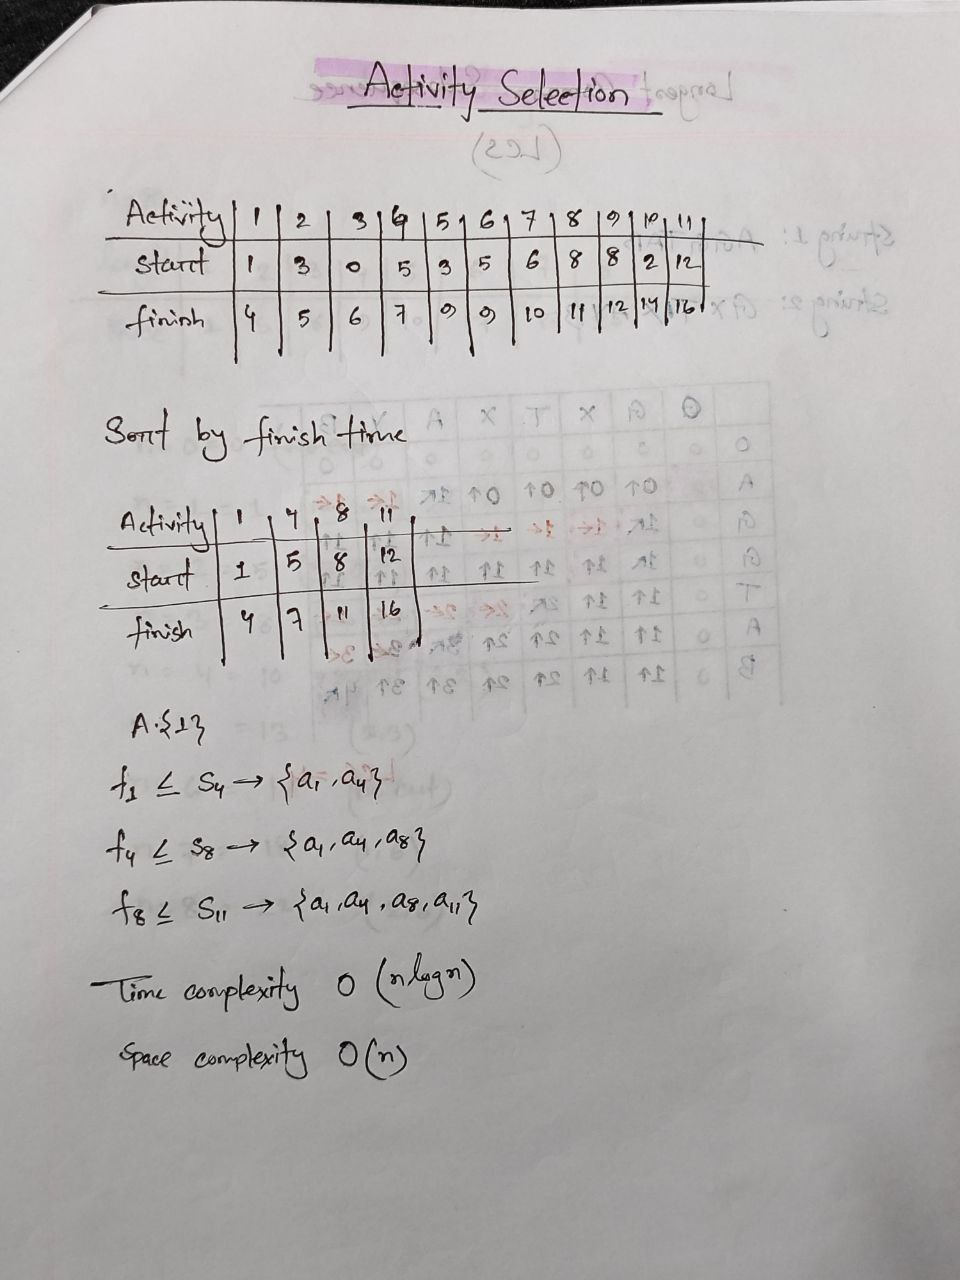 Activity Selection
Activity | 1 | 2 | 3 | 4 | 5 | 6 | 7 | 8 | 9 | 10 | 11 |
start | 1 | 3 | 0 | 5 | 3 | 5 | 6 | 8 | 8 | 2 | 12
finish | 4 | 5 | 6 | 7 | 9 | 9 | 10 | 11 | 12 | 14 | 16
Sort by finish time
Activity | 1 | 4 | 8 | 11
start | 1 | 5 | 8 | 12
finish | 4 | 7 | 11 | 16
A.{1}
f₁ ≤ S₄ → {a₁, a₄}
f₄ ≤ S₈ → {a₁, a₄, a₈}
f₈ ≤ S₁₁ → {a₁, a₄, a₈, a₁₁}
Time complexity O (n logn)
Space complexity O(n)